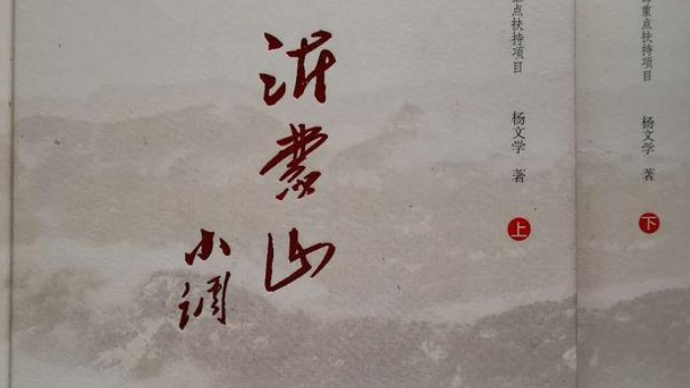 沂蒙山
小调
重点扶持项目
杨文学 著
上
重点扶持项目
杨文学 著
下